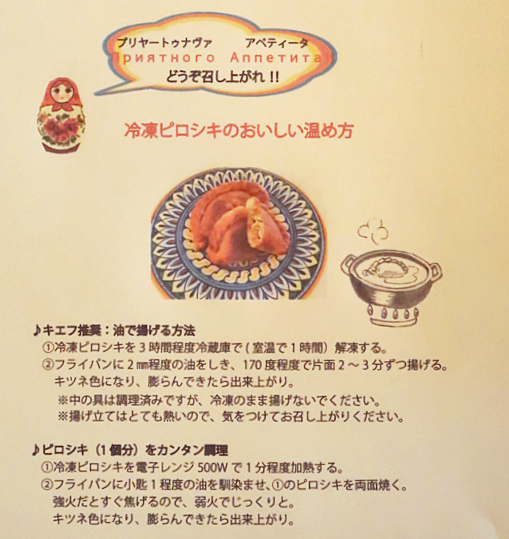 プリヤートゥナヴァ　アペティータ
Приятного Аппетита!
どうぞ召し上がれ !!
冷凍ピロシキのおいしい温め方
♪キエフ推奨：油で揚げる方法
①冷凍ピロシキを 3 時間程度冷蔵庫で ( 室温で 1 時間）解凍する。
②フライパンに 2 ㎜程度の油をしき、170 度程度で片面 2 ～ 3 分ずつ揚げる。
キツネ色になり、膨らんできたら出来上がり。
※中の具は調理済みですが、冷凍のまま揚げないでください。
※揚げ立てはとても熱いので、気をつけてお召し上がりください。
♪ピロシキ（1 個分）をカンタン調理
①冷凍ピロシキを電子レンジ 500W で 1 分程度加熱する。
②フライパンに小匙 1 程度の油を馴染ませ、①のピロシキを両面焼く。
強火だとすぐ焦げるので、弱火でじっくりと。
キツネ色になり、膨らんできたら出来上がり。